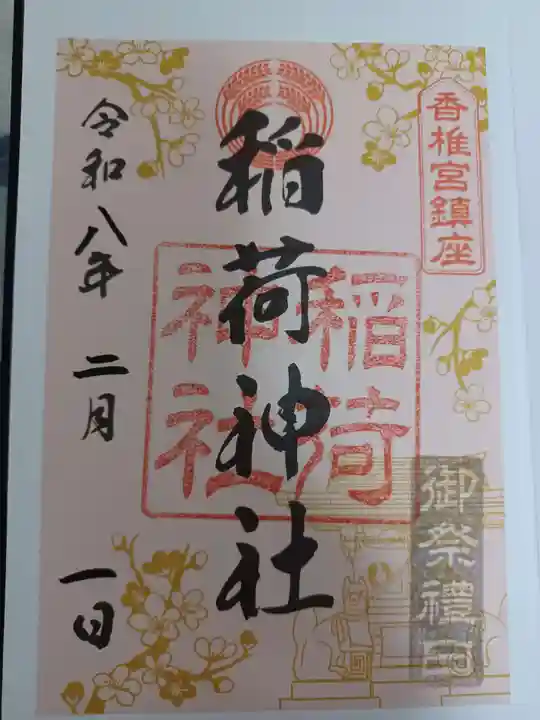 香椎宮鎮座
御祭禮
稲荷神社
稲荷
神社
令和八年 二月 一日